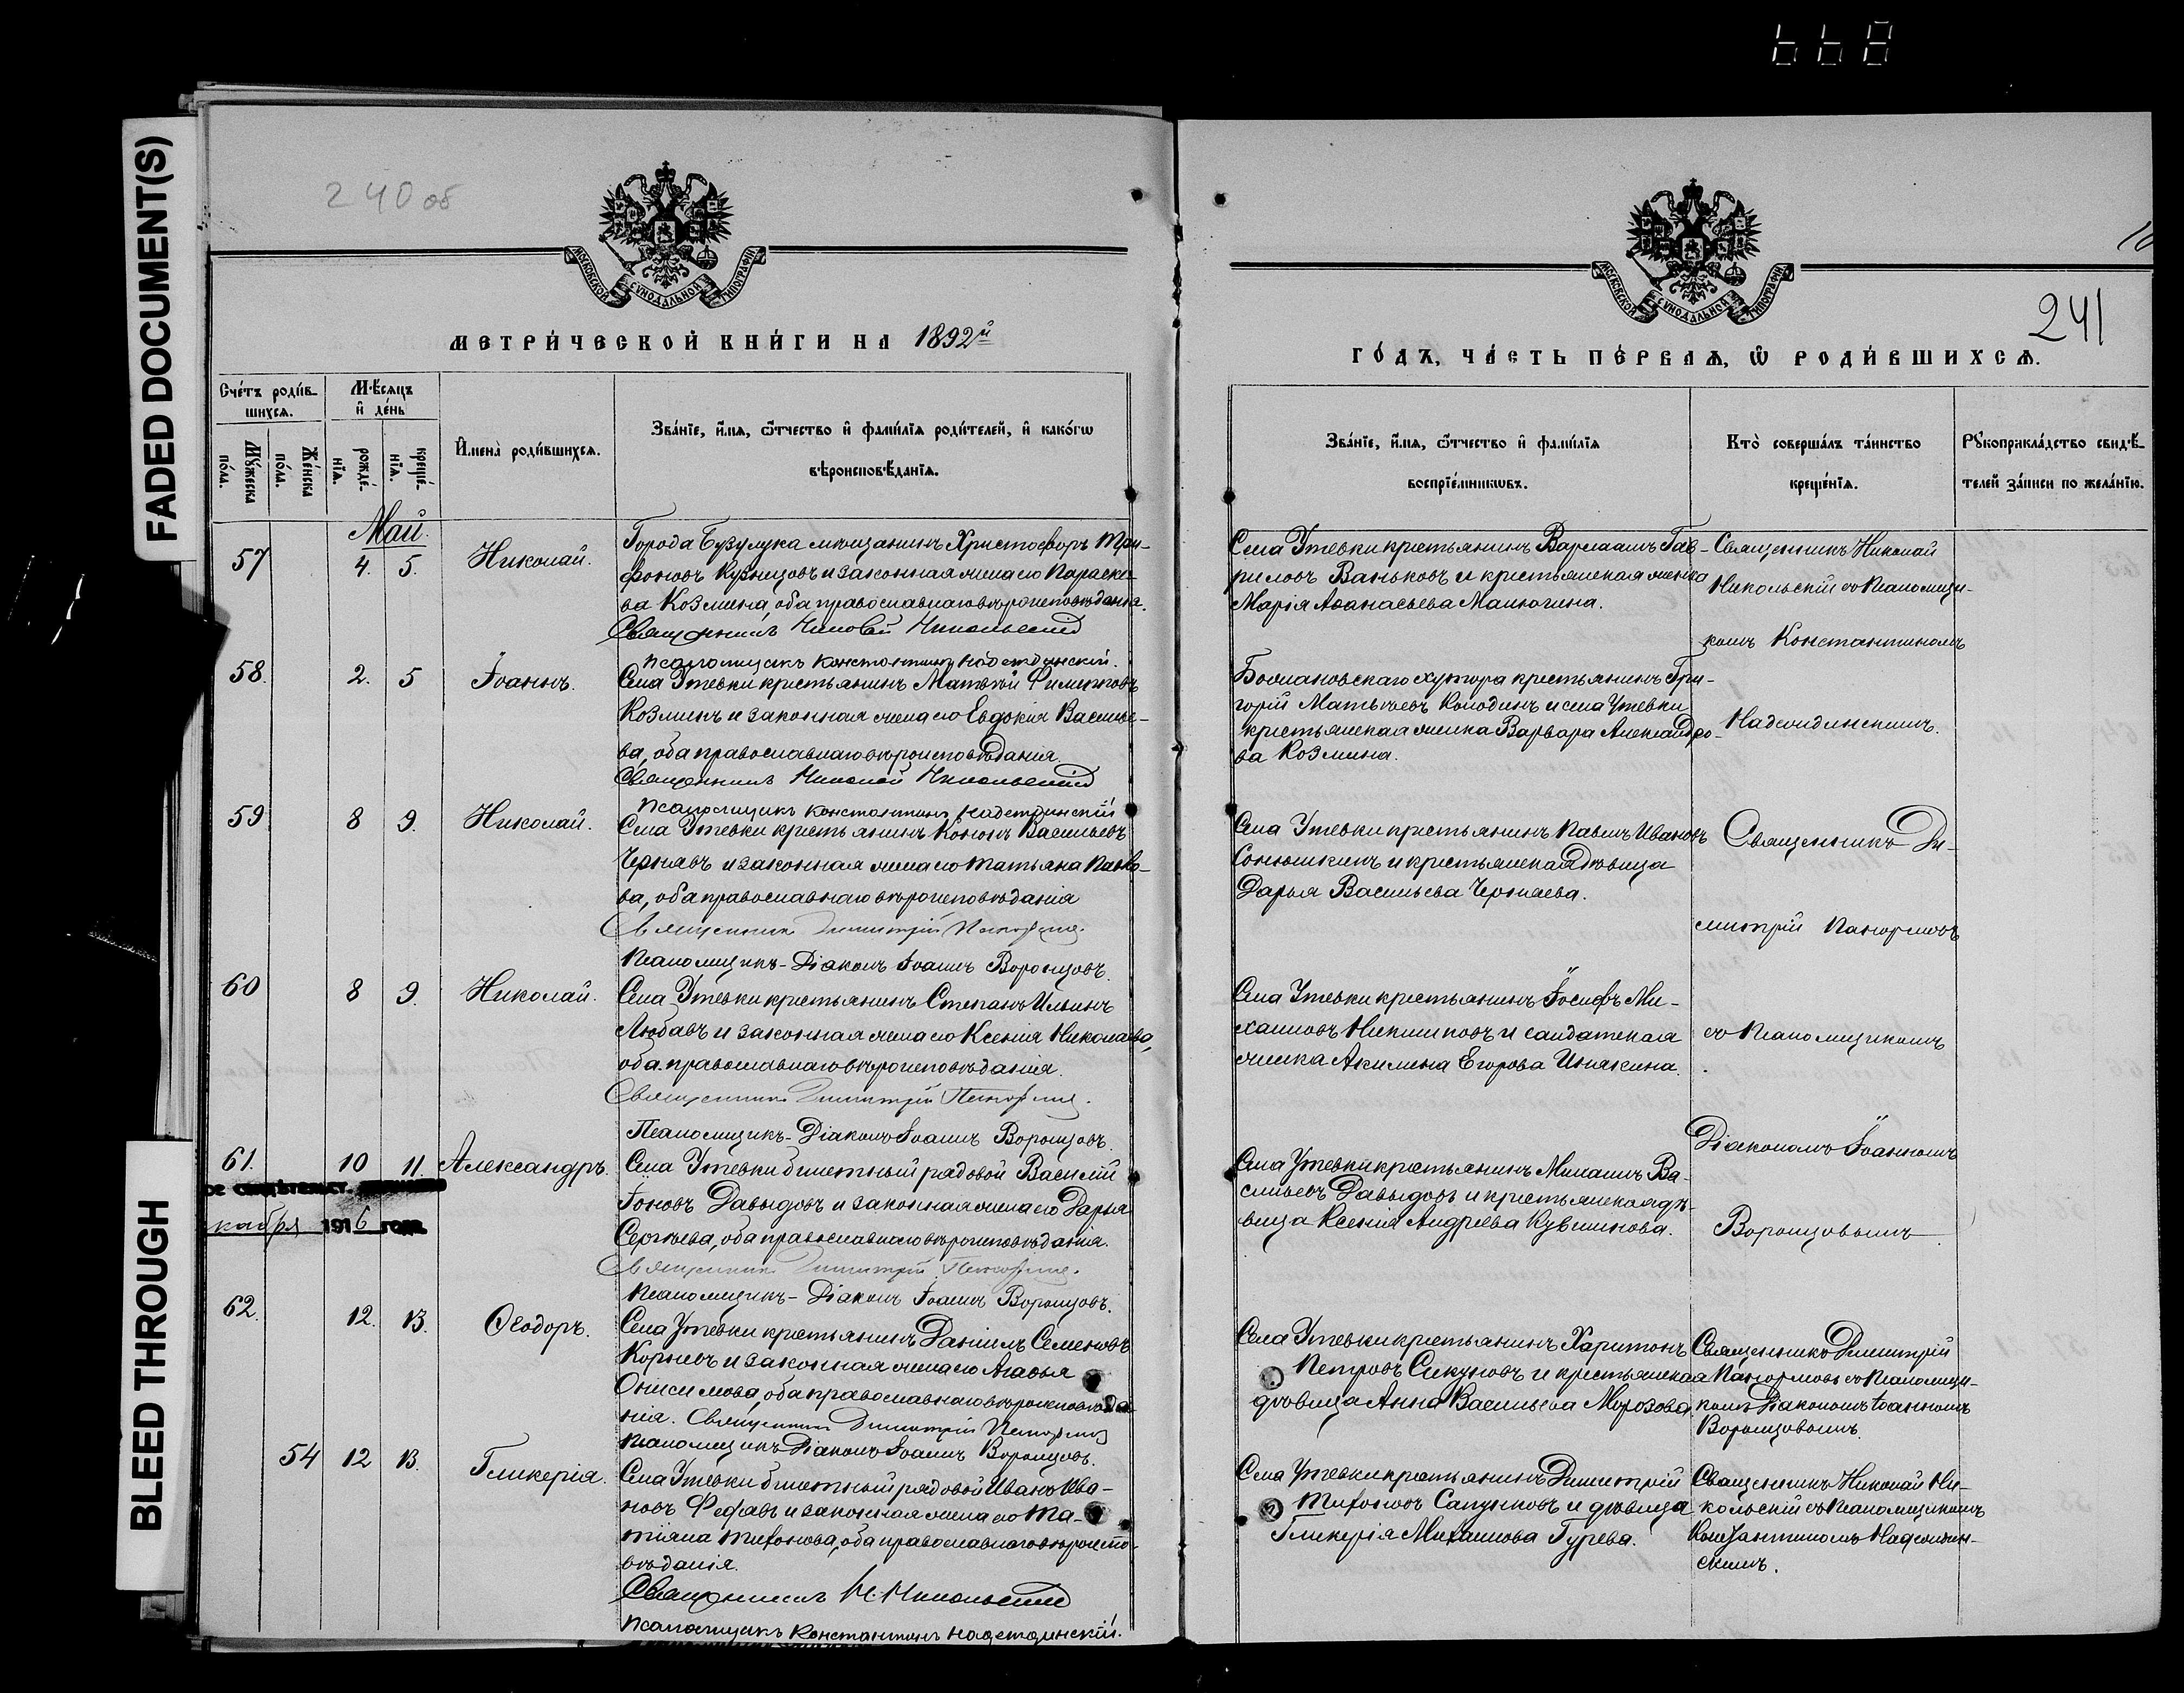 FADED DOCUMENT(S)
BLEED THROUGH
240 об
МОСКОВСКОЙ СѴНОДАЛЬНОЙ ТИПОГРАФІИ
МЕТРИ́ЧЕСКОЙ КНИ́ГИ НА 1892й
Сче́тъ роди́в-
шихсѧ.
Мꙋ́жеска по́ла.
Же́нска по́ла.
Мѣ́сѧцъ и҆ де́нь
рожде́-нїѧ.
креще́-нїѧ.
И҆мена̀ роди́вшихсѧ.
Зва́нїе, и҆́мѧ, ѻ҆́тчество и҆ фами́лїѧ роди́телей, и҆ како́гѡ
вѣроисповѣ́данїѧ.
Май.
57 4. 5. Николай.
Города Бузулука мѣщанинъ Христофоръ Три-
фоновъ Кузнецовъ и законная жена его Параске-
ва Козмина, оба православнаго вѣроисповѣданія.
Священникъ Николай Никольскій
Псаломщикъ Константинъ Надеждинскій.
58. 2. 5 Іоаннъ.
Села Утевки крестьянинъ Матвѣй Филипповъ
Козминъ и законная жена его Евдокія Василье-
ва, оба православнаго вѣроисповѣданія.
Священникъ Николай Никольскій
Псаломщикъ Константинъ Надеждинскій
59 8 9. Николай.
Села Утевки крестьянинъ Кононъ Васильевъ
Черняевъ и законная жена его Татьяна Павло-
ва, оба православнаго вѣроисповѣданія
Священникъ Димитрій Панормовъ.
Псаломщикъ-Діаконъ Іоаннъ Воронцовъ.
60 8 9. Николай.
Села Утевки крестьянинъ Степанъ Ильинъ
Любаевъ и законная жена его Ксенія Николаева,
оба православнаго вѣроисповѣданія.
Священникъ Димитрій Панормовъ.
Псаломщикъ-Діаконъ Іоаннъ Воронцовъ.
61. 10 11. Александръ.
кабря 1916 года
Села Утевки билетный рядовой Василій
Іоновъ Давыдовъ и законная жена его Дарья
Сергѣева, оба православнаго вѣроисповѣданія.
Священникъ Димитрій Панормовъ.
Псаломщикъ-Діаконъ Іоаннъ Воронцовъ.
62. 12. 13. Ѳеодоръ.
Села Утевки крестьянинъ Даніилъ Семеновъ
Корневъ и законная жена его Агаѳья
Онисимова, оба православнаго вѣроисповѣда-
нія. Священникъ Димитрій Панормовъ
Псаломщикъ Діаконъ Іоаннъ Воронцовъ.
54 12 13. Гликерія.
Села Утевки билетный рядовой Иванъ Ива-
новъ и законная жена его Та-
тіана Тихонова, оба православнаго вѣроиспо-
вѣданія.
Священникъ Н. Никольскій
Псаломщикъ Константинъ Надеждинскій.
МОСКОВСКОЙ СѴНОДАЛЬНОЙ ТИПОГРАФІИ
241
ГО́ДЪ, ЧА́СТЬ ПЕ́РВАѦ, Ѽ РОДИ́ВШИХСѦ.
Зва́нїе, и҆́мѧ, ѻ҆́тчество и҆ фами́лїѧ
воспрїе́мникѡвъ.
Кто̀ соверша́лъ та́инство
креще́нїѧ.
Рꙋкоприкла́дство свидѣ́-
телей за́писи по жела́нїю.
Села Утевки крестьянинъ Варлаамъ Гав-
риловъ Ваньковъ и крестьянская женка
Марія Аѳанасьева Манюгина.
Священникъ Николай
Никольскій съ Псаломщи-
комъ Константиномъ
Надеждинскимъ.
хутора крестьянинъ Гри-
горій Матвѣевъ Колодинъ и села Утевки
крестьянская женка Варвара Александро-
ва Козмина.
Села Утевки крестьянинъ Павелъ Ивановъ
Сонюшкинъ и крестьянская дѣвица
Дарья Васильева Черняева.
Священникъ Ди-
митрій Панормовъ
съ Псаломщикомъ
Діакономъ Іоанномъ
Воронцовымъ
Села Утевки крестьянинъ Іосифъ Ми-
хаиловъ Никишковъ и солдатская
женка Акилина Егорова Инякина.
Села Утевки крестьянинъ Михаилъ Ва-
сильевъ Давыдовъ и крестьянская дѣ-
вица Ксенія Андреева Кувшинова.
Села Утевки крестьянинъ Харитонъ
Петровъ Сикуновъ и крестьянская
дѣвица Анна Васильева Морозова
Священникъ Димитрій
Панормовъ съ Псаломщи-
комъ Діакономъ Іоанномъ
Воронцовымъ.
Села Утевки крестьянинъ Димитрій
Тихоновъ Сапунковъ и дѣвица
Гликерія Михаилова Гурева.
Священникъ Николай Ни-
кольскій съ Псаломщикомъ
Константиномъ Надеждин-
скимъ.